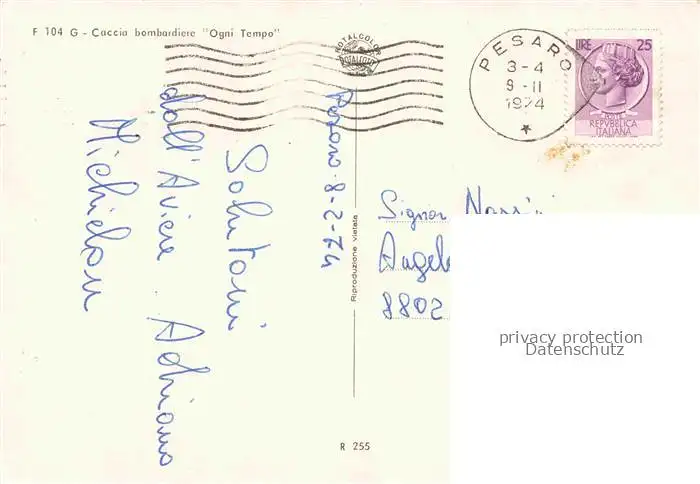 F 104 G - Caccia bombardiere "Ogni Tempo"
ROTALCOLOR
ROTALFOTO
PESARO
3-4
9-II
1974
LIRE 25
POSTE
REPVBBLICA
ITALIANA
Pesaro 8-2-74
Saluti
dall'Aviere Adriano
Signor
Angelo
8802
Riproduzione vietata
R 255
privacy protection
Datenschutz